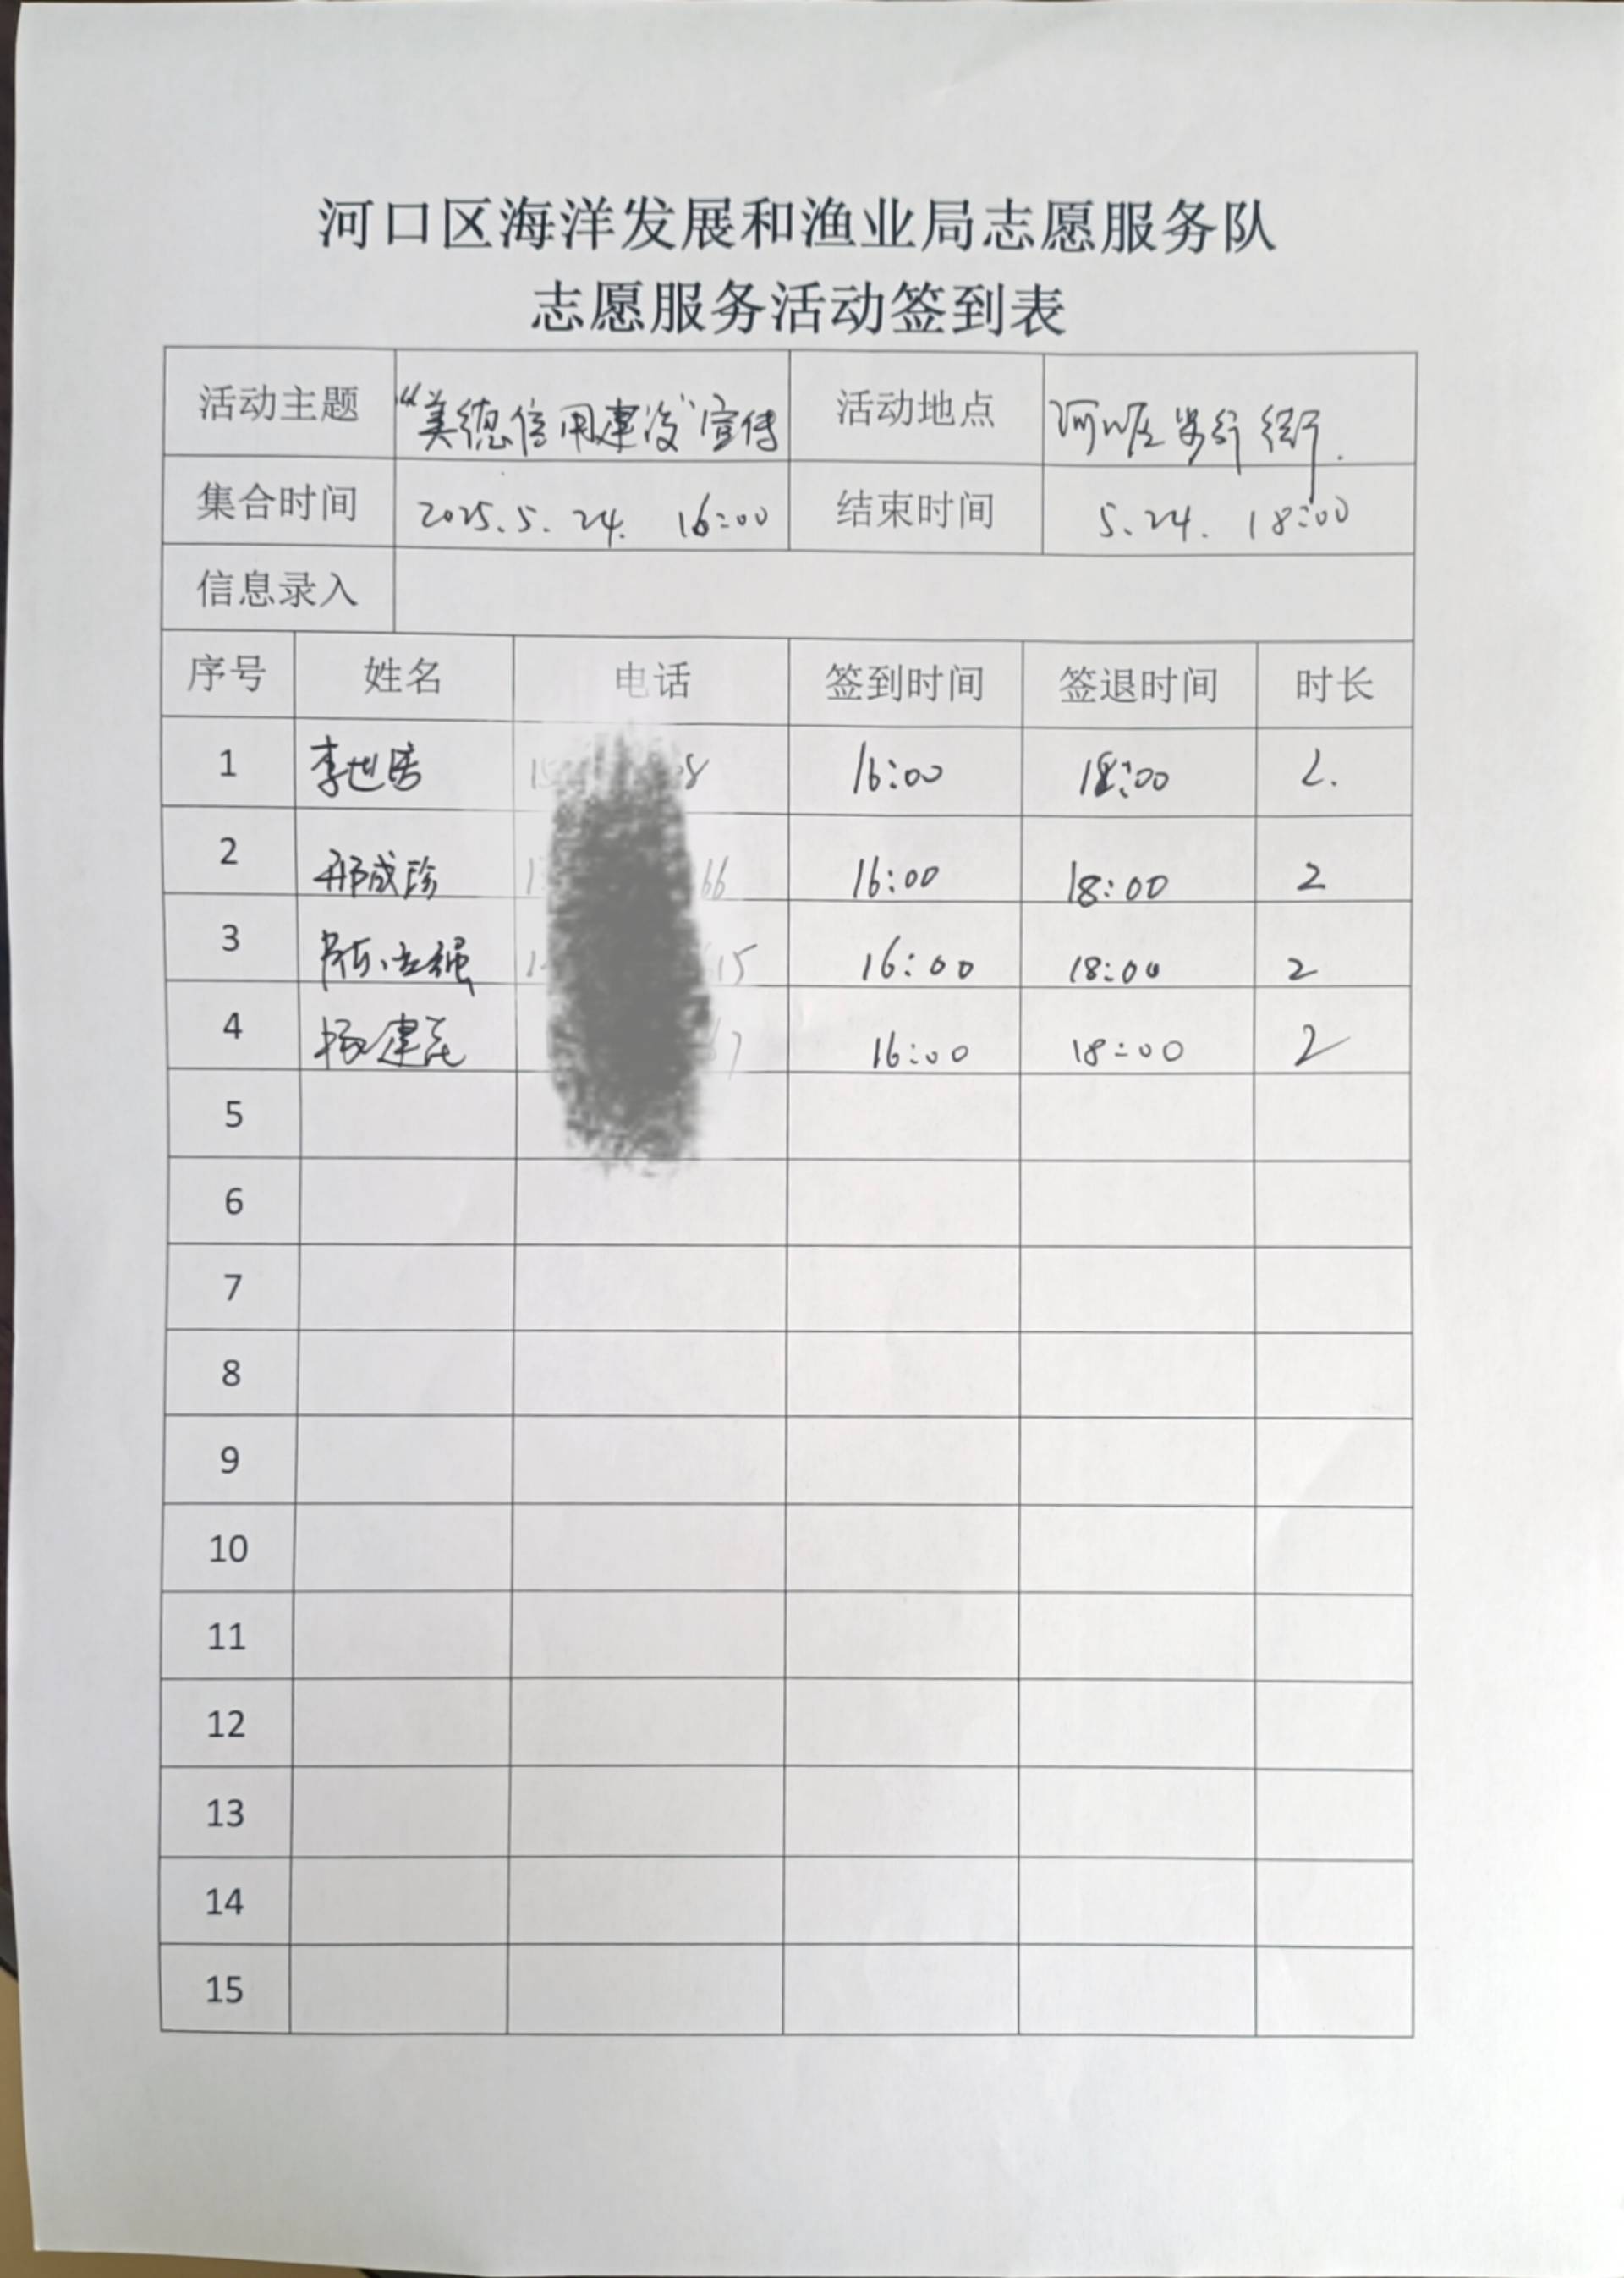 河口区海洋发展和渔业局志愿服务队
志愿服务活动签到表
活动主题 “美德信用建设”宣传 活动地点 河口区步行街.
集合时间 2025.5.24. 16:00 结束时间 5.24. 18:00
信息录入
序号 姓名 电话 签到时间 签退时间 时长
1 李世 16:00 18:00 2.
2 邢成珍 16:00 18:00 2
3 陈立强 16:00 18:00 2
4 杨建 16:00 18:00 2
5
6
7
8
9
10
11
12
13
14
15